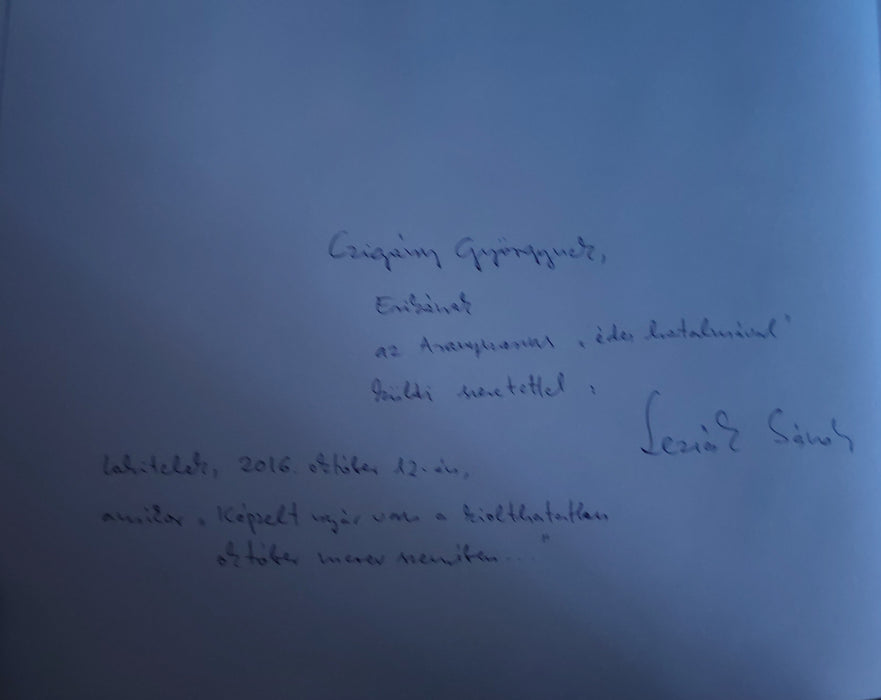 Czigány Györgynek,
Erikának
az Aranykorsal „édes hatalmával"
küldi szeretettel:
Lezsák Sándor
Lakitelek, 2016. október 12-én,
amikor „Képzelt nyár van a kiolthatatlan
október merev szemében..."